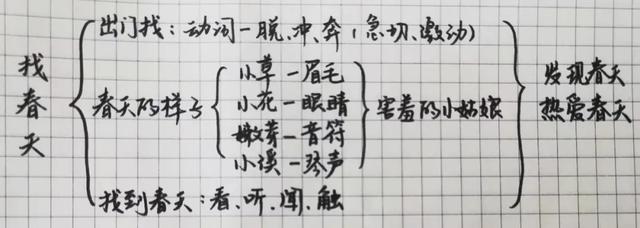 找春天
出门找：动词—脱、冲、奔（急切、激动）
春天的样子
小草—眉毛
小花—眼睛
嫩芽—音符
小溪—琴声
害羞的小姑娘
找到春天：看、听、闻、触
发现春天
热爱春天